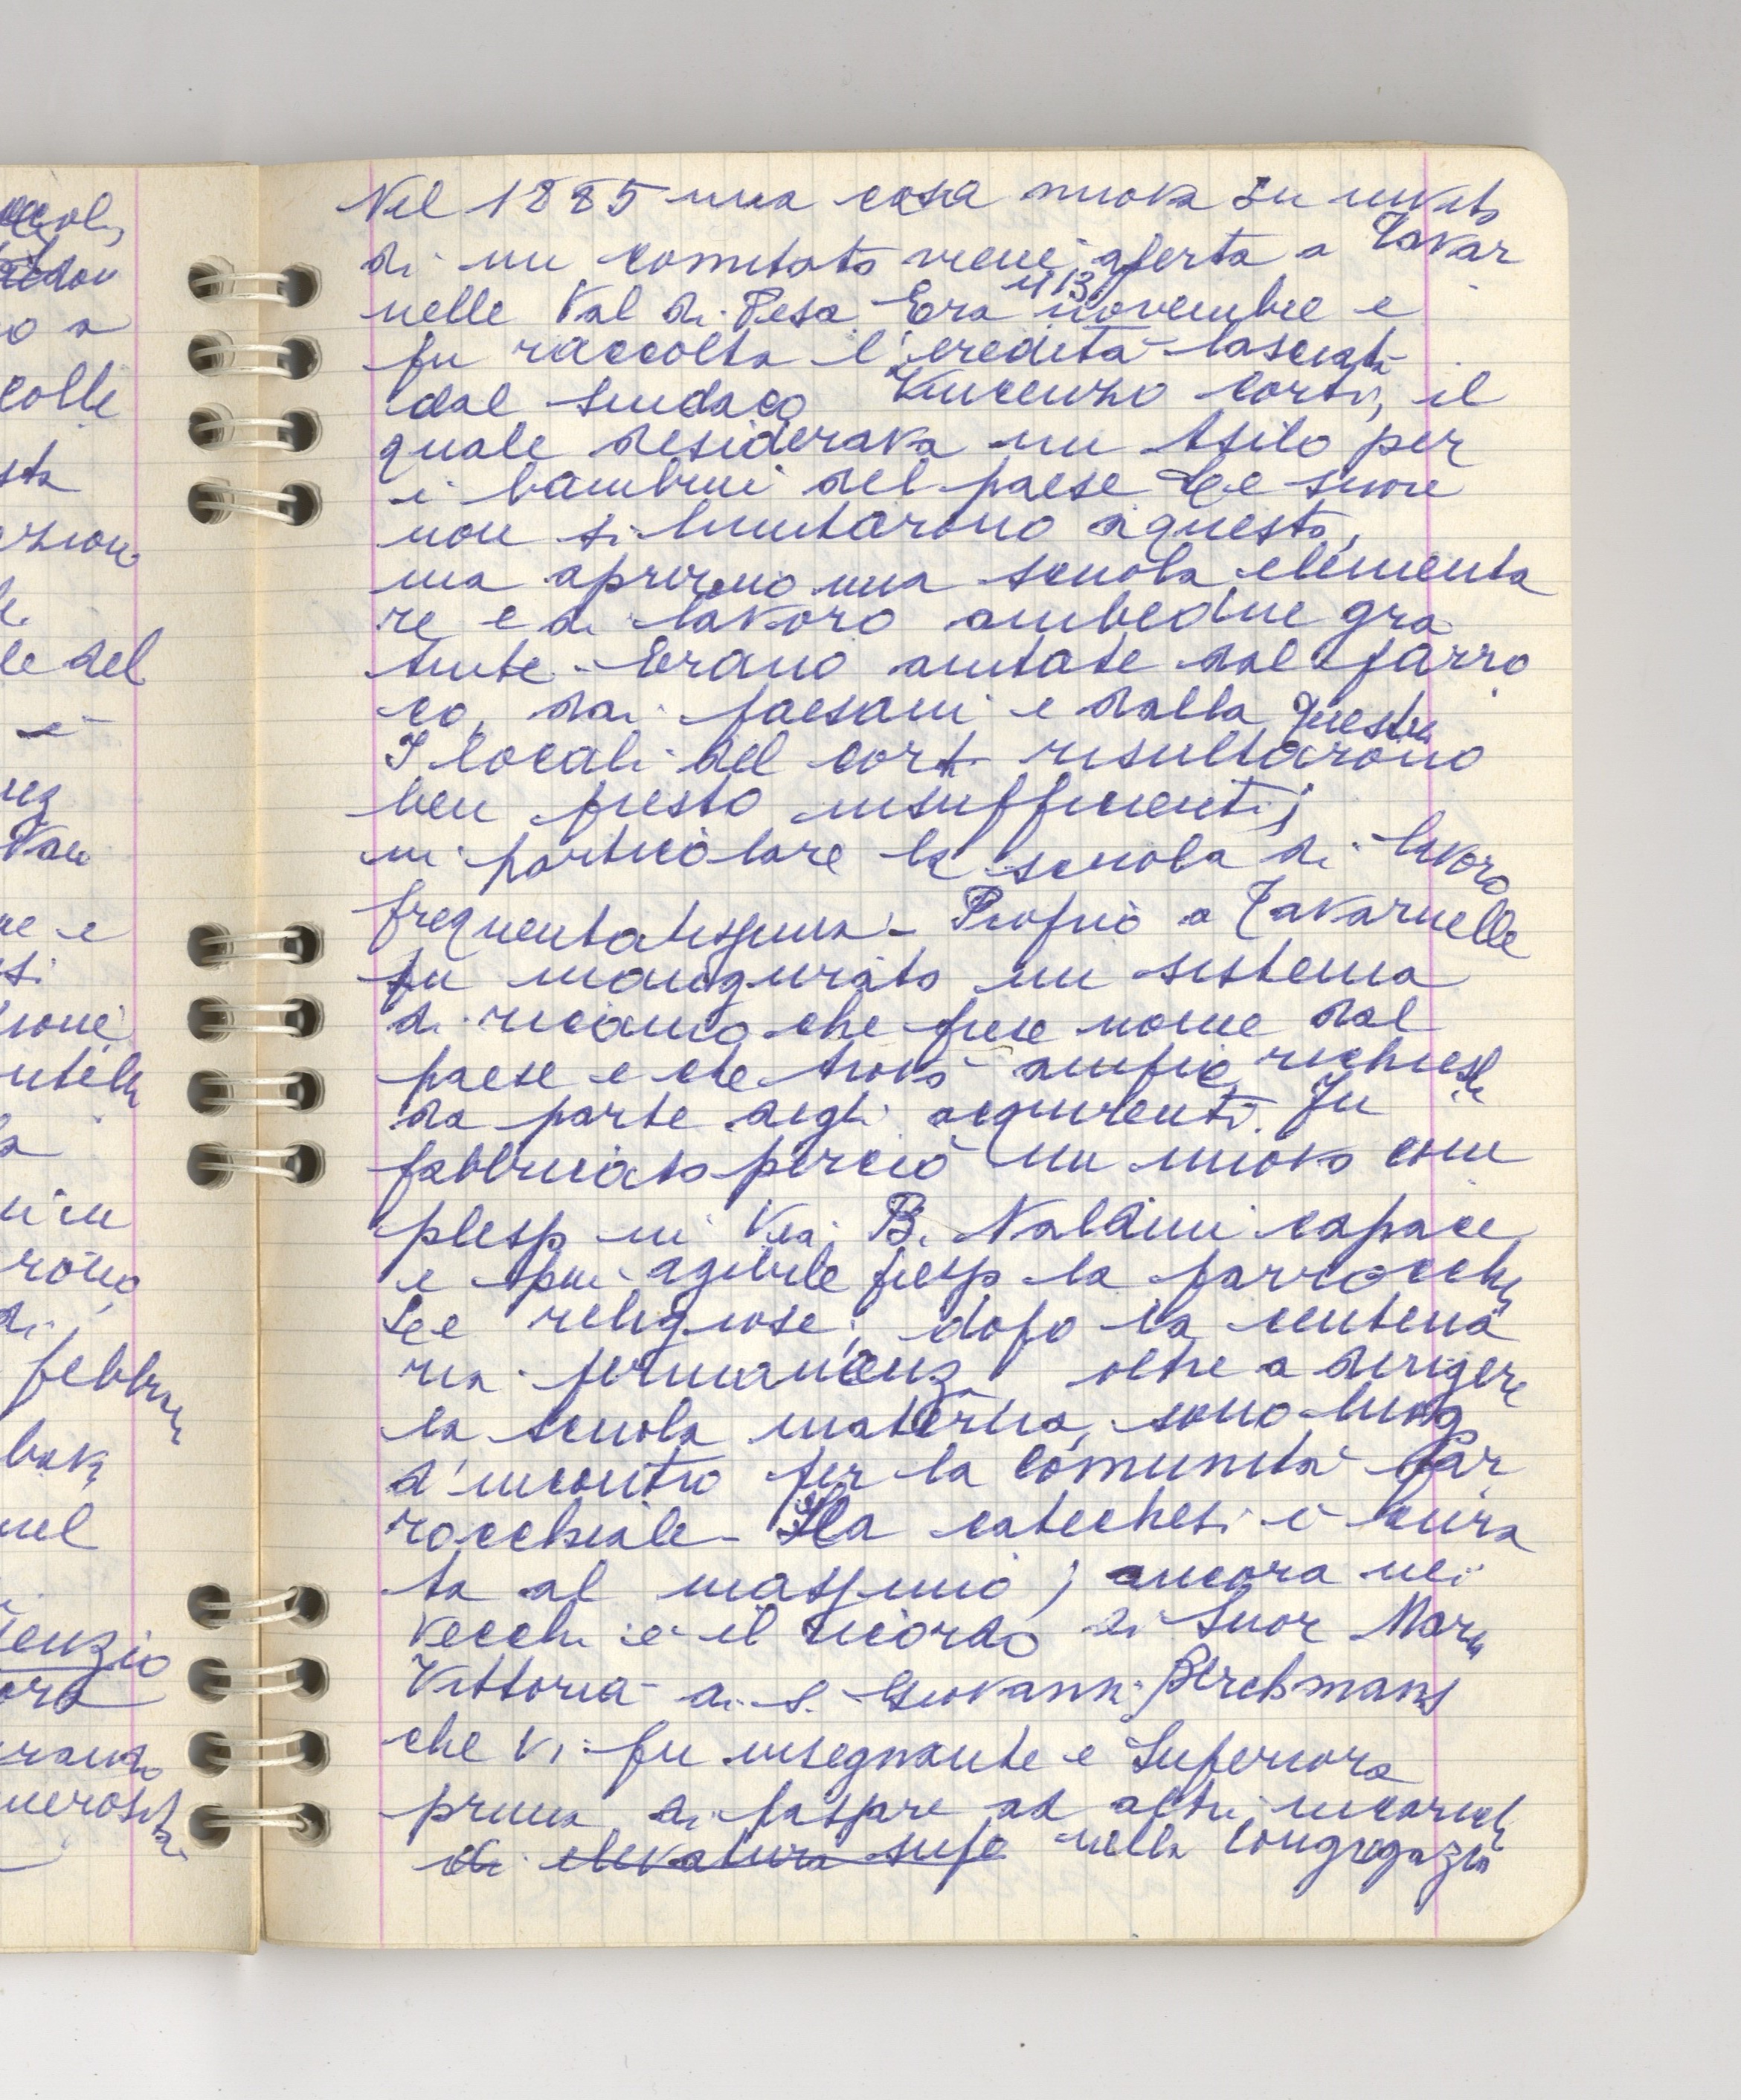 Nel 1885 una casa nuova su invito
di un comitato viene aperta a Tavar
nelle Val di Pesa Era il 13 novembre e
fu raccolta l'eredità lasciata
dal sindaco Vincenzo Corti, il
quale desiderava un Asilo per
i bambini del paese Le suore
non si limitarono a questo,
ma aprirono una scuola elementa
re e di lavoro ambedue gra
tuite - Erano aiutate dal parro
co, dai paesani e dalla
I locali del Corti risultarono
ben presto insufficienti;
in particolare la scuola di lavoro
frequentatissima - Proprio a Tavarnelle
fu inaugurato un sistema
di ricamo che prese nome dal
paese e che trovò ampie richieste
da parte degli acquirenti. Fu
fabbricato perciò un nuovo com
plesso in Via B. Naldini capace
e più agibile presso la parrocchia
Le religiose, dopo la centena
ria permanenza oltre a dirigere
la scuola materna, sono luogo
d'incontro per la comunità par
rocchiale - La catechesi è cura
ta al massimo; ancora nei
vecchi è il ricordo di Suor Maria
Vittoria di S. Giovanni Berchmans
che vi fu insegnante e Superiora
prima di passare ad altri incarichi
di elevatura supe nella Congregazio